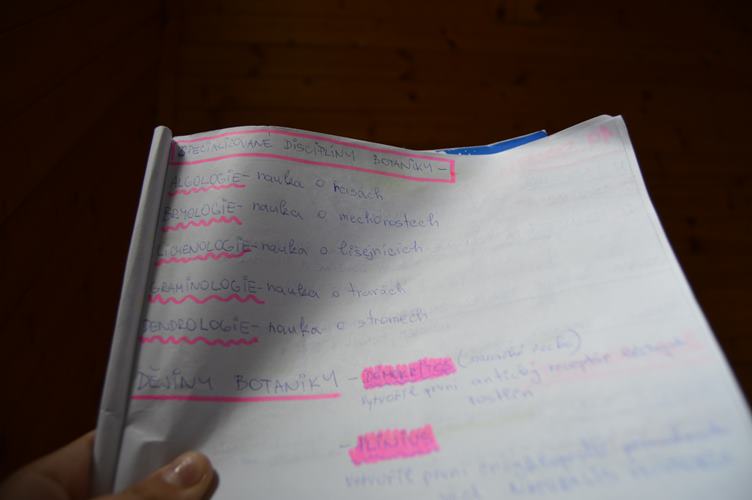 SPECIALIZOVANÉ DISCIPLÍNY BOTANIKY -
ALGOLOGIE - nauka o řasách
BRYOLOGIE - nauka o mechorostech
LICHENOLOGIE - nauka o lišejnících
GRAMINOLOGIE - nauka o travách
DENDROLOGIE - nauka o stromech
DĚJINY BOTANIKY - DÉMOKRITOS
vytvořil první antický
rostlin
- PLINIUS
vytvořil první